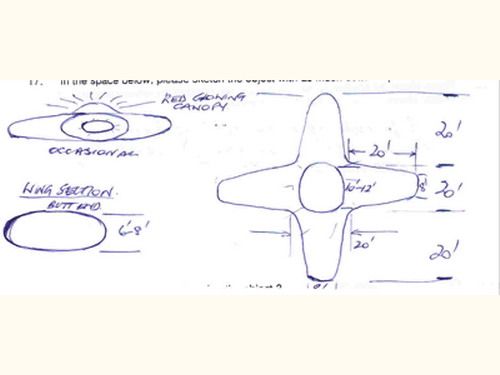 17. In the space below, please sketch the object with
RED GLOWING
CANOPY
OCCASIONAL
WING SECTION.
BUTT END
6'-8'
20'
20'
20'
10'-12'
8'
20'
20'
the object ?
8'